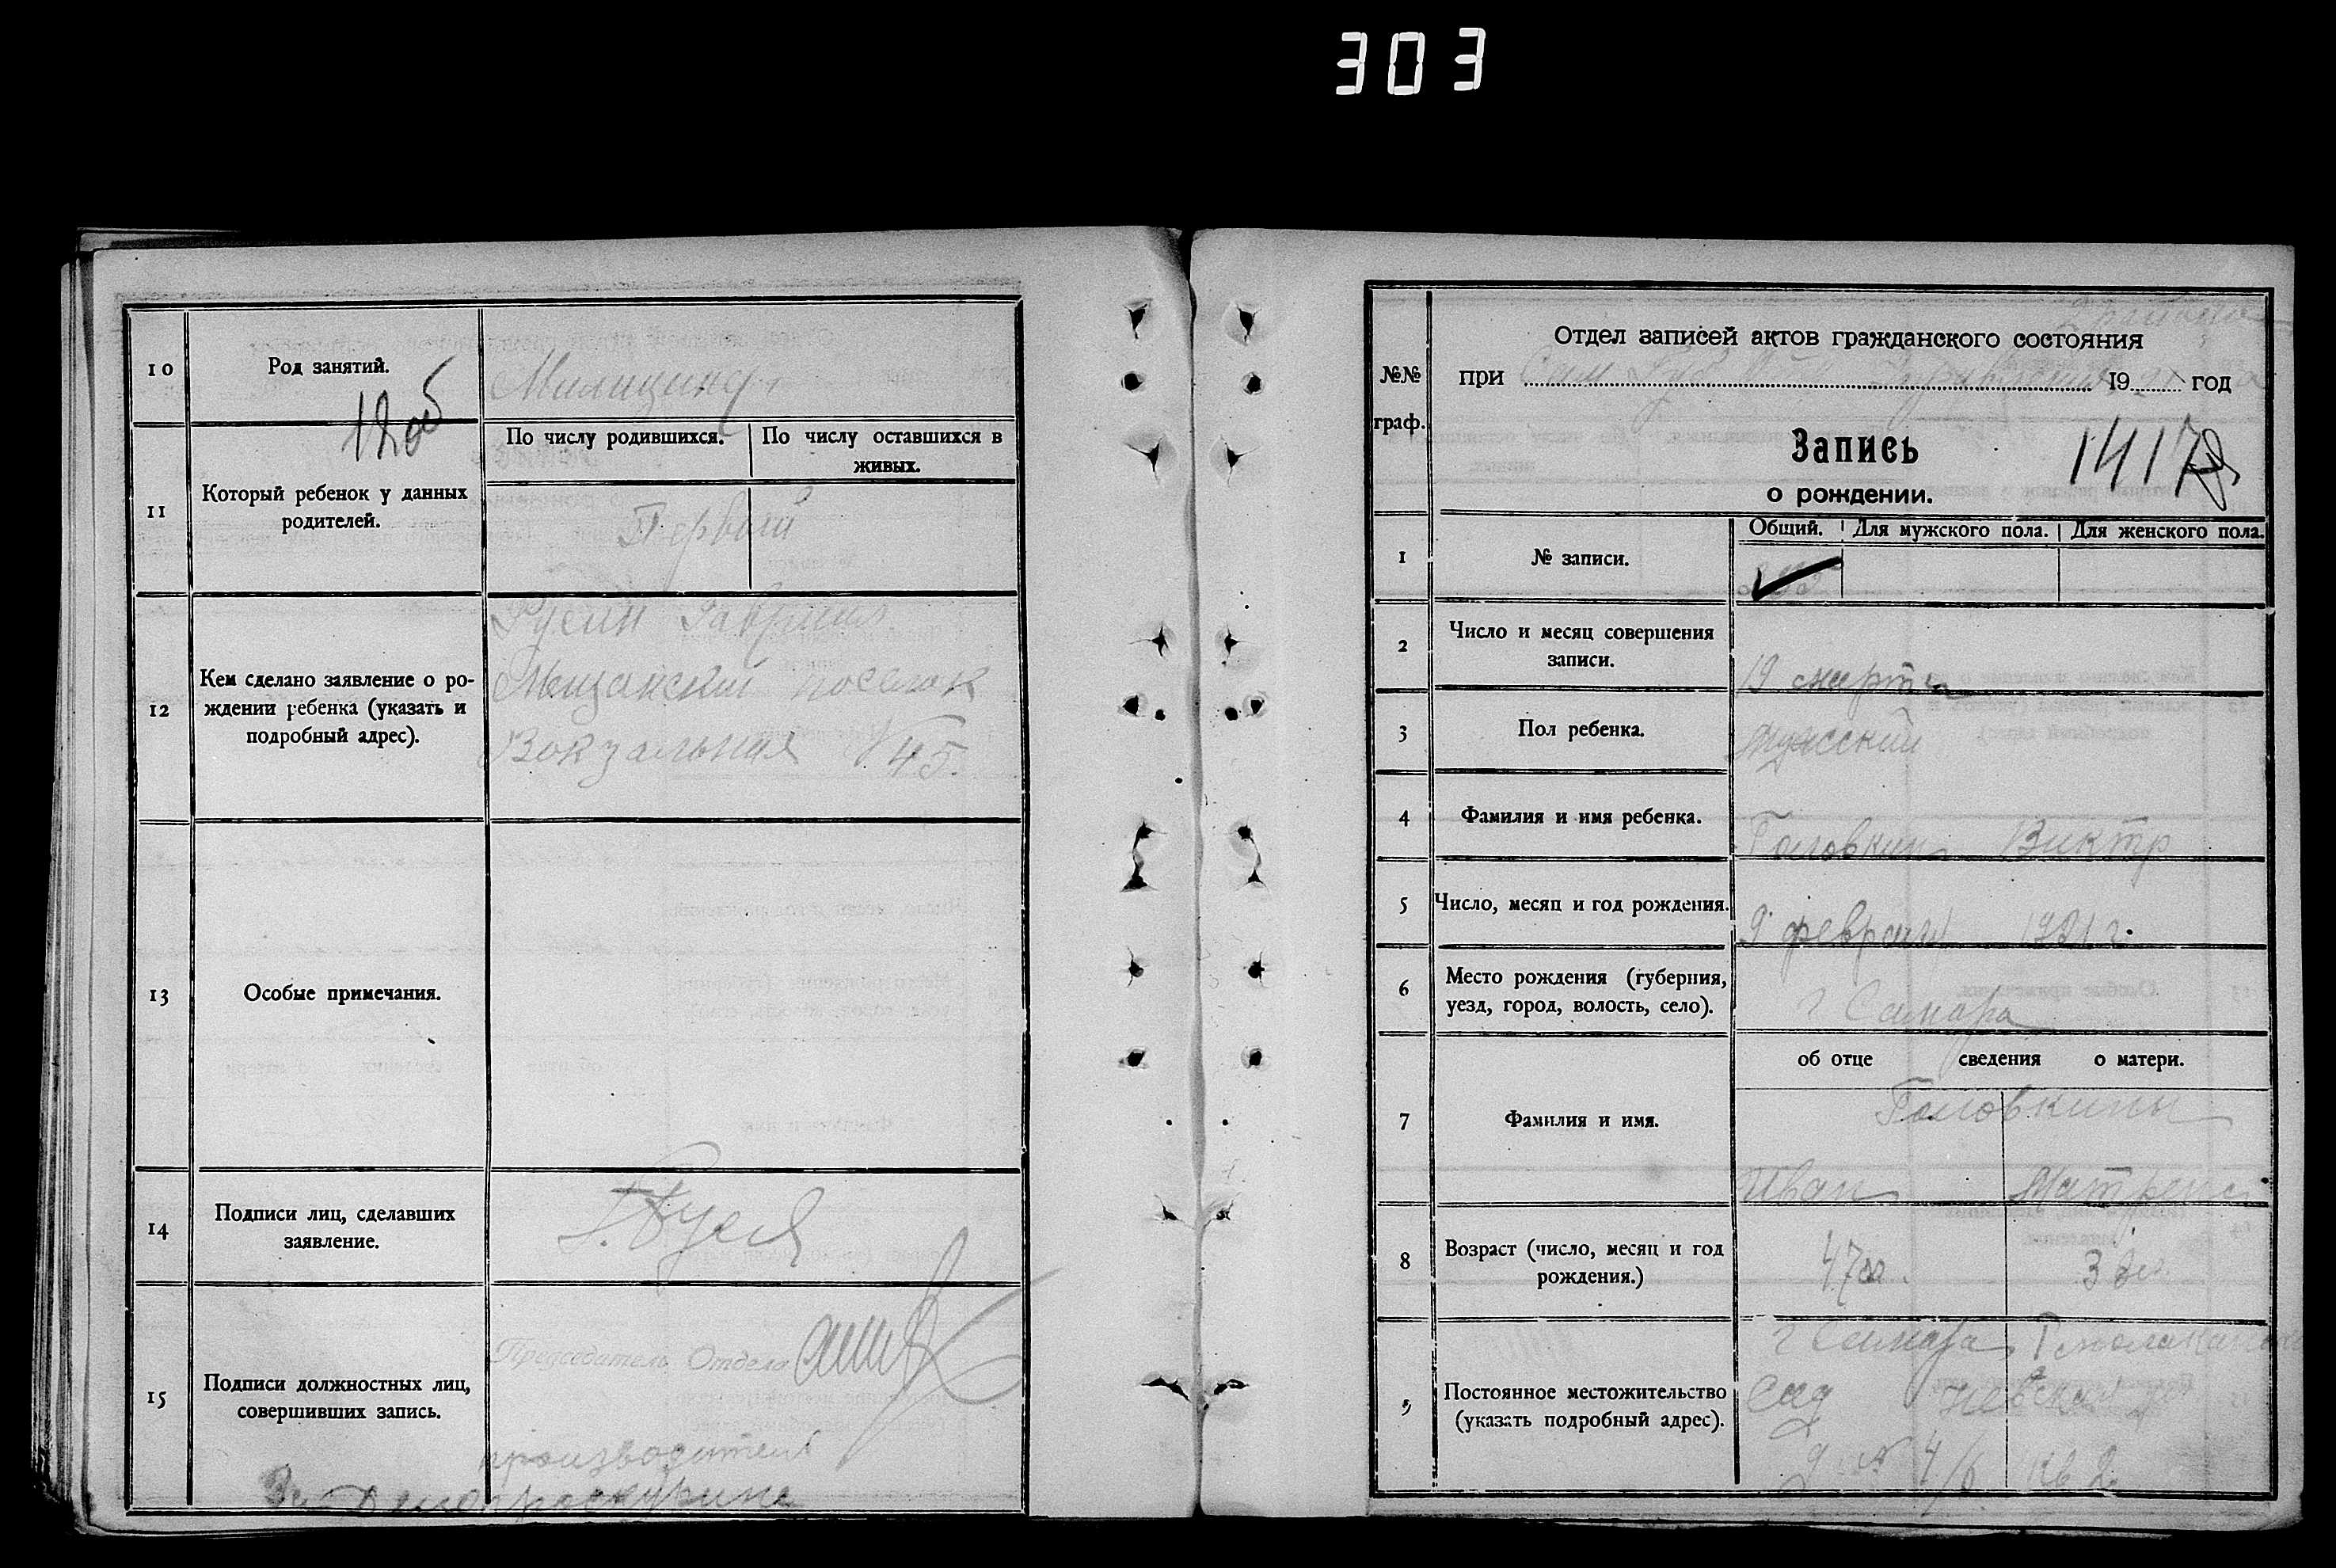 303
10
Род занятий.
Милицинер
11
Который ребенок у данных
родителей.
По числу родившихся.
По числу оставшихся в
живых.
Первый
12
Кем сделано заявление о ро-
ждении ребенка (указать и
подробный адрес).
Русин Гавриил
Мещанский поселок
Вокзальная № 45.
13
Особые примечания.
14
Подписи лиц, сделавших
заявление.
15
Подписи должностных лиц,
совершивших запись.
Председатель Отдела
производитель
№№
граф.
Отдел записей актов гражданского состояния
при 19 год
Запись
1417
о рождении.
1
№ записи.
Общий. Для мужского пола. Для женского пола.
2
Число и месяц совершения
записи.
19 марта
3
Пол ребенка.
мужский
4
Фамилия и имя ребенка.
Головкин Виктр
5
Число, месяц и год рождения.
9 февраля 1921 г.
6
Место рождения (губерния,
уезд, город, волость, село).
г Самара
об отце сведения о матери.
7
Фамилия и имя.
Головкины
Иван Матрена
8
Возраст (число, месяц и год
рождения.)
9
Постоянное местожительство
(указать подробный адрес).
г Самара
сад
д. № 4/6 кв 2.